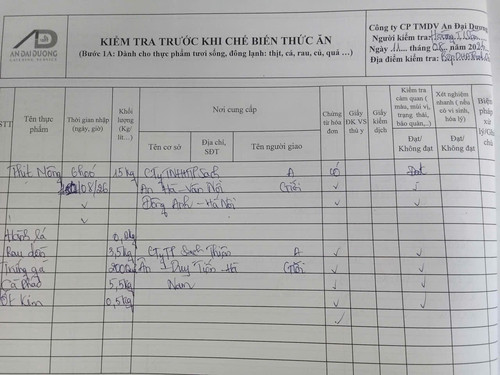 AN DAI DUONG
KIỂM TRA TRƯỚC KHI CHẾ BIẾN THỨC ĂN
(Bước 1A: Dành cho thực phẩm tươi sống, đông lạnh: thịt, cá, rau, củ, quả …)
Công ty CP TMDV An Đại Dương
Người kiểm tra:
Ngày 11 tháng 08 năm
Địa điểm kiểm tra:
STT
Tên thực phẩm
Thời gian nhập (ngày, giờ)
Khối lượng (Kg/ lít…)
Nơi cung cấp
Tên cơ sở
Địa chỉ, SĐT
Tên người giao
Chứng từ hóa đơn
Giấy ĐK VS thú y
Giấy kiểm dịch
Kiểm tra cảm quan (màu, mùi vị, trạng thái, bảo quản,..)
Đạt/ Không đạt
Xét nghiệm nhanh ( nếu có vi sinh, hóa lý)
Đạt/ Không đạt
Biện pháp xử lý/Ghi chú
15kg Cty TNHH TP Sạch A có Đạt
An Hà - Vân Nội Giới ✓ ✓
✓ Đông Anh - Hà Nội ✓ ✓
Hành lá
Rau dền 3,5kg Cty TP Sạch Thiện A ✓ ✓
Trứng gà An Duy Tiên - Hà Giới ✓ ✓
Cà pháo 5,5kg Nam ✓ ✓
Ớt Kim 0,5kg ✓ ✓
✓